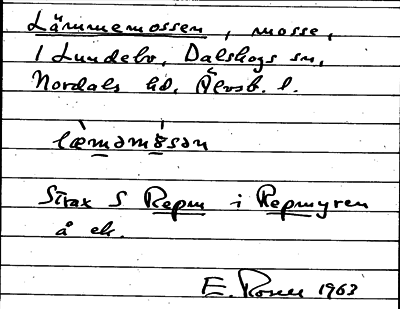 Lämmemossen, mosse,
1 Lundebo, Dalskogs sn,
Nordals hd, Älvsb. l.
læ̀məmósən
Strax S Repm i Repmyren
å ek.
E. 1963